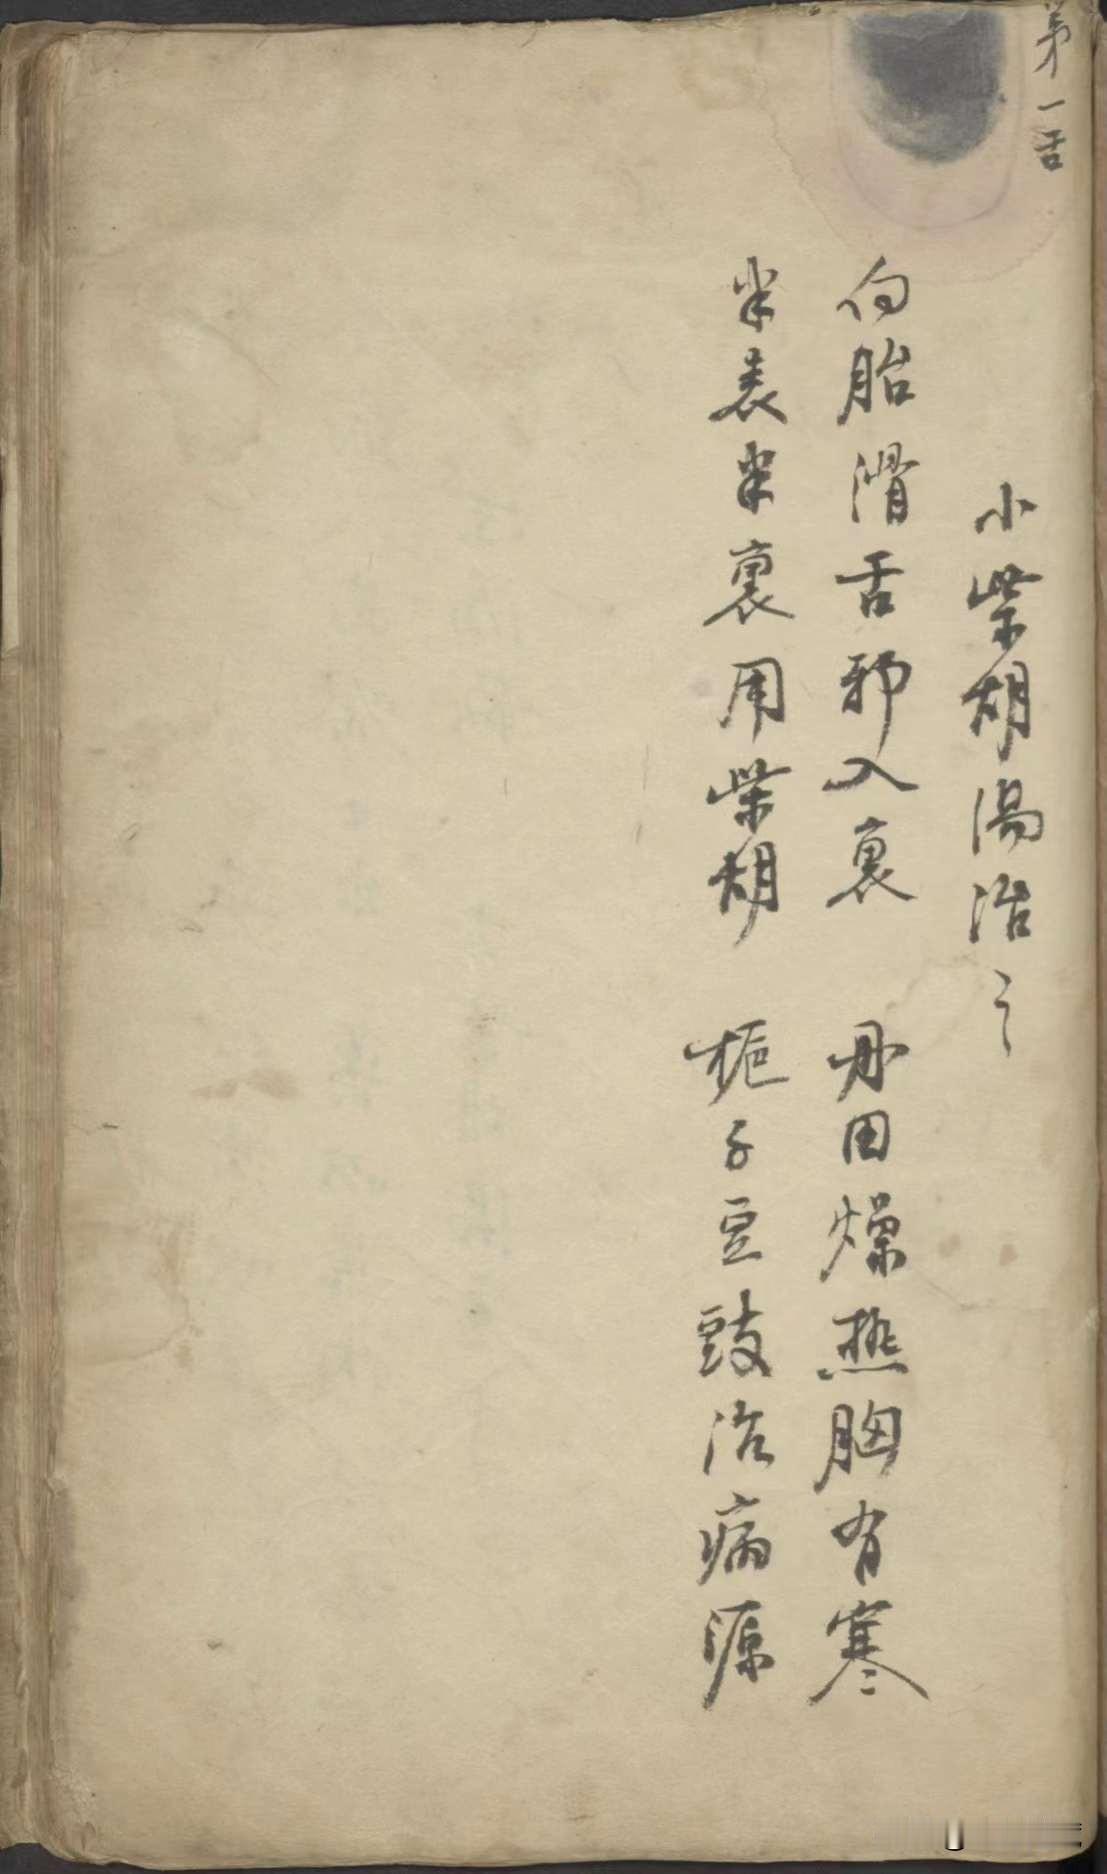 第一舌
小柴胡湯治之
白胎滑舌邪入裏 丹田燥熱胸有寒
半表半裏用柴胡 栀子豆豉治病源